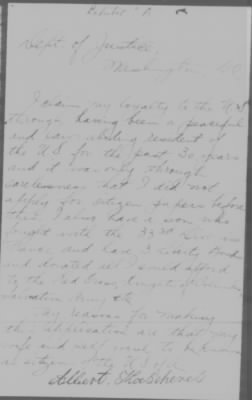 Exhibit "A"
Dept. of Justice,
Washington, D.C.
I claim my loyalty to the U.S.
through having been a peaceful
and law abiding resident of
the U.S. for the past 30 years
and it was only through
carelessness that I did not
apply for citizen papers before
this. I also have a son who
fought with the 33rd Div. in
France, and have 3 Liberty Bonds
and donated all I could afford
to the Red Cross, Knights of Columbus,
Salvation Army etc.
My reasons for making
this application are that my
wife and self want to be
as citizens of the U.S.
Albert